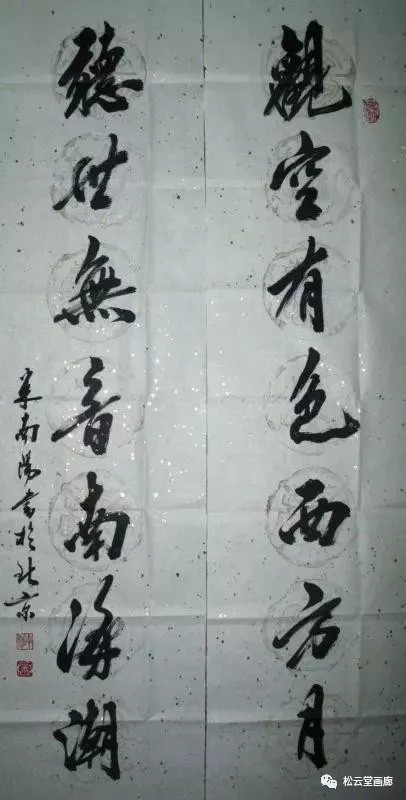 觀空有色西方月
聽世無音南海潮
宋南陽書於北京
松云堂画廊